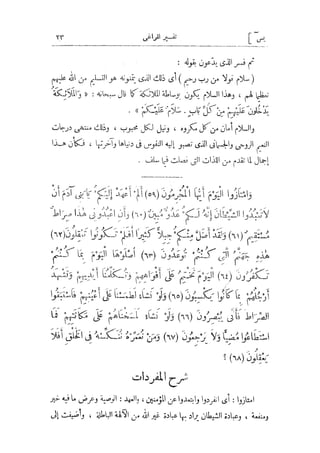 يس ]
تفسير المراغى
٢٣
ثم فسر الذى يدّعون بقوله :
( سلام قولا من رب رحيم ) أى ذلك الذى يتمنونه هو التسليم من الله عليهم
تعظيما لهم ، وهذا السلام يكون بوساطة الملائكة كما قال سبحانه : « وَالْمَلَائِكَةُ
يَدْخُلُونَ عَلَيْهِمْ مِنْ كُلِّ بَابٍ . سَلَامٌ عَلَيْكُمْ » .
والسلام أمان من كل مكروه ، ونيل لكل محبوب ، وذلك منتهى درجات
النعيم الروحى والجثمانى الذى تصبو إليه النفوس فى دنياها وآخرتها ، فكأن هذا
إجمال لما تقدم من اللذات التى فصلت فيما سلف .
وَامْتَازُوا الْيَوْمَ أَيُّهَا الْمُجْرِمُونَ (٥٩) أَلَمْ أَعْهَدْ إِلَيْكُمْ يَا بَنِي آدَمَ أَنْ
لَا تَعْبُدُوا الشَّيْطَانَ إِنَّهُ لَكُمْ عَدُوٌّ مُبِينٌ (٦٠) وَأَنِ اعْبُدُونِي هَذَا صِرَاطٌ
مُسْتَقِيمٌ (٦١) وَلَقَدْ أَضَلَّ مِنْكُمْ جِبِلًّا كَثِيرًا أَفَلَمْ تَكُونُوا تَعْقِلُونَ (٦٢)
هَذِهِ جَهَنَّمُ الَّتِي كُنْتُمْ تُوعَدُونَ (٦٣) اصْلَوْهَا الْيَوْمَ بِمَا كُنْتُمْ
تَكْفُرُونَ (٦٤) الْيَوْمَ نَخْتِمُ عَلَى أَفْوَاهِهِمْ وَتُكَلِّمُنَا أَيْدِيهِمْ وَتَشْهَدُ
أَرْجُلُهُمْ بِمَا كَانُوا يَكْسِبُونَ (٦٥) وَلَوْ نَشَاءُ لَطَمَسْنَا عَلَى أَعْيُنِهِمْ فَاسْتَبَقُوا
الصِّرَاطَ فَأَنَّى يُبْصِرُونَ (٦٦) وَلَوْ نَشَاءُ لَمَسَخْنَاهُمْ عَلَى مَكَانَتِهِمْ فَمَا
اسْتَطَاعُوا مُضِيًّا وَلَا يَرْجِعُونَ (٦٧) وَمَنْ نُعَمِّرْهُ نُنَكِّسْهُ فِي الْخَلْقِ أَفَلَا
يَعْقِلُونَ (٦٨) ؟
شرح المفردات
امتازوا : أى انفردوا وابتعدوا عن المؤمنين ، والعهد : الوصية وعرض ما فيه خير
ومنفعة ، وعبادة الشيطان يراد بها عبادة غير الله من الآلهة الباطلة ، وأضيفت إلى